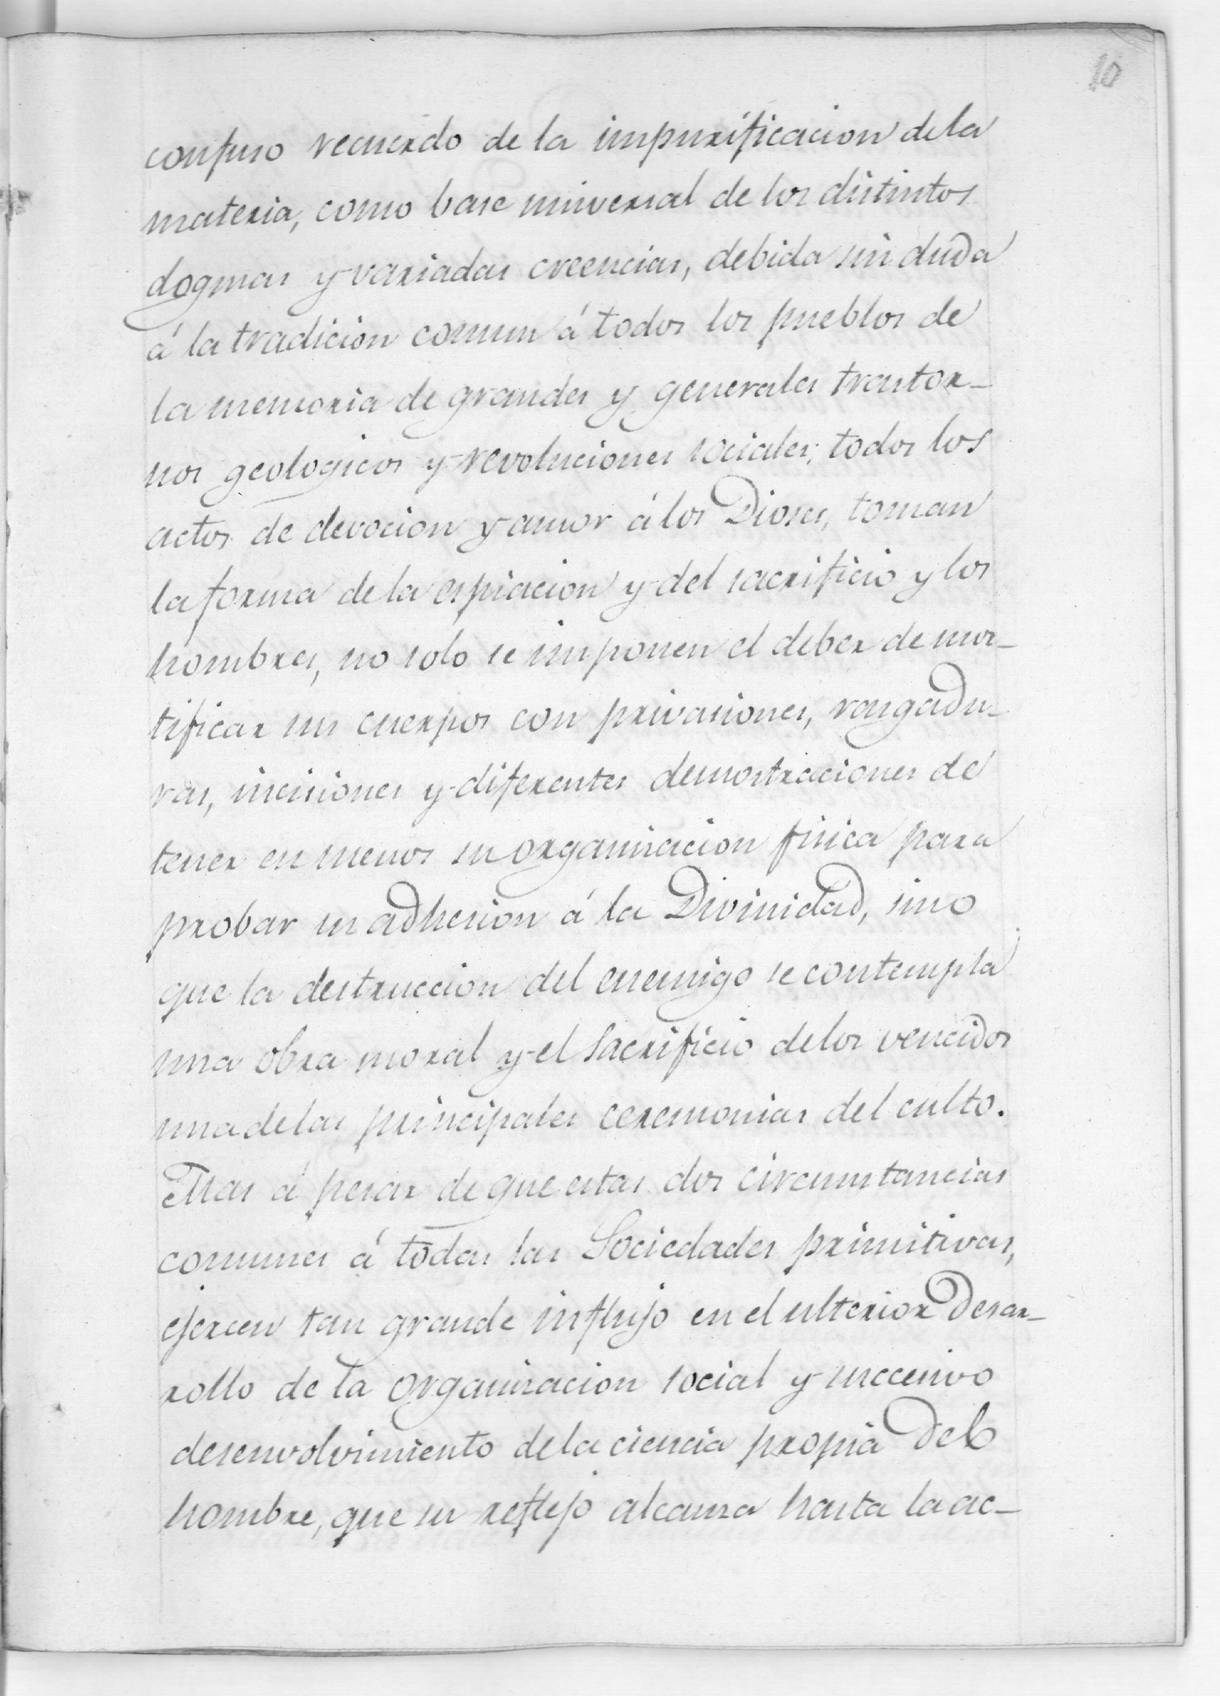 10
confuso recuerdo de la impurificacion de la
materia, como base universal de los distintos
dogmas y variadas creencias, debida sin duda
á la tradicion comun á todos los pueblos de
la memoria de grandes y generales trastor-
nos geologicos y revoluciones sociales; todos los
actos de devocion y amor á los Dioses, toman
la forma de la espiacion y del sacrificio y los
hombres, no solo se imponen el deber de mor-
tificar sus cuerpos con privaciones, rasgadu-
ras, incisiones y diferentes demostraciones de
tener en menos su organizacion fisica para
probar su adhesion á la Divinidad, sino
que la destruccion del enemigo se contempla
una obra moral y el sacrificio de los vencidos
una de las principales ceremonias del culto.
Mas á pesar de que estas dos circunstancias
comunes á todas las Sociedades primitivas,
ejercen tan grande influjo en el ulterior desar-
rollo de la organizacion social y succesivo
desenvolvimiento de la ciencia propia del
hombre, que su reflejo alcanza hasta la ac-